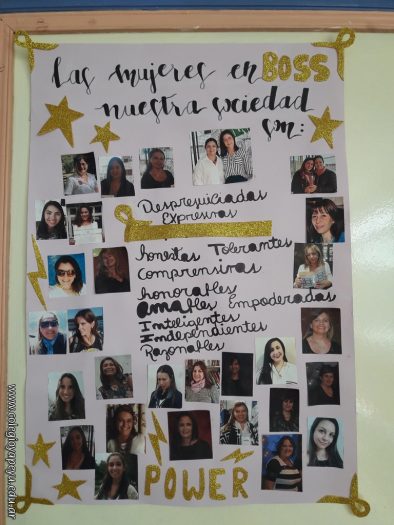 Las mujeres en BOSS
nuestra sociedad
son:
Desprejuiciadas
Expresivas
honestas Tolerantes
comprensivas
honorables
amables Empoderadas
Inteligentes
Independientes
Razonables
POWER